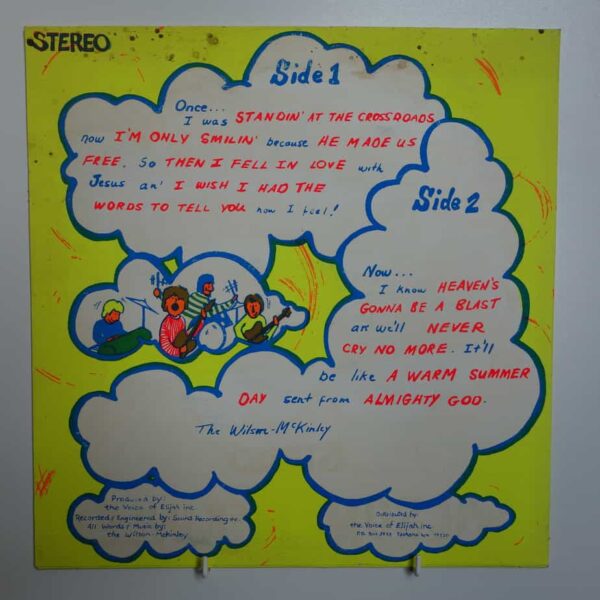 STEREO
Side 1
Once...
I was STANDIN' AT THE CROSSROADS
now I'M ONLY SMILIN' because HE MADE US
FREE. So THEN I FELL IN LOVE with
Jesus an' I WISH I HAD THE
WORDS TO TELL YOU how I feel!
Side 2
Now...
I know HEAVEN'S
GONNA BE A BLAST
an we'll NEVER
CRY NO MORE. It'll
be like A WARM SUMMER
DAY sent from ALMIGHTY GOD.
The Wilson-McKinley
Produced by:
the Voice of Elijah inc.
Recorded/Engineered by: Sound Recording
All Words/Music by:
the Wilson-McKinley
Distributed by:
the Voice of Elijah inc.
P.O. Box Spokane